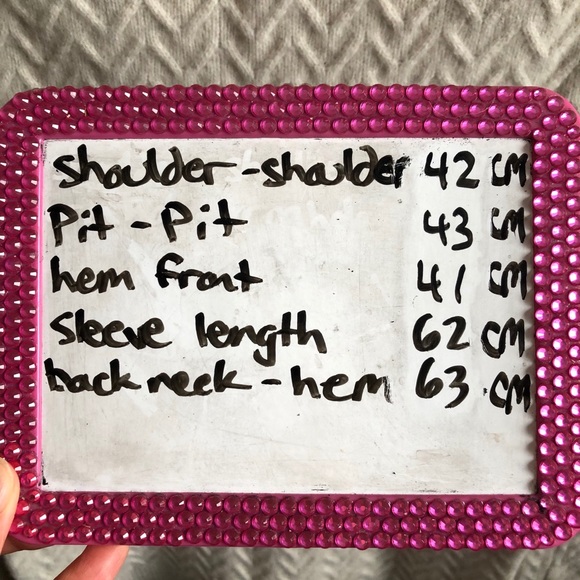 shoulder-shoulder 42 CM
Pit-Pit 43 CM
hem front 41 CM
Sleeve length 62 CM
back neck-hem 63 CM